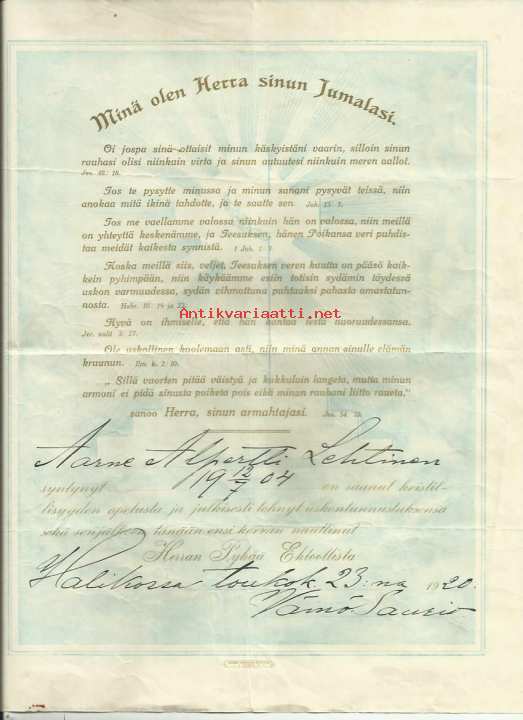 Minä olen Herra sinun Jumalasi.
Oi jospa sinä ottaisit minun käskyistäni vaarin, silloin sinun
rauhasi olisi niinkuin virta ja sinun autuutesi niinkuin meren aallot.
Jes. 48: 18.
Jos te pysytte minussa ja minun sanani pysyvät teissä, niin
anokaa mitä ikinä tahdotte, ja te saatte sen Joh. 15: 7.
Jos me vaellamme valossa niinkuin hän on valossa, niin meillä
on yhteyttä keskenämme, ja Jeesuksen, hänen Poikansa veri puhdis-
taa meidät kaikesta synnistä. 1 Joh. 1: 7.
Koska meillä siis, veljet, Jeesuksen veren kautta on pääsö kaik-
kein pyhimpään, niin käykäämme esiin totisin sydämin täydessä
uskon varmuudessa, sydän vihmottuna puhtaaksi pahasta omastatun-
nosta. Hebr. 10: 19 ja 22.
Antikvariaatti.net
Hyvä on ihmiselle, että hän kantaa iestä nuoruudessansa.
Jer. valit 3: 27.
Ole uskollinen kuolemaan asti, niin minä annan sinulle elämän
kruunun. Ilm. k. 2: 10.
„Sillä vuorten pitää väistyä ja kukkulain langeta, mutta minun
armoni ei pidä sinusta poiketa pois eikä minun rauhani liitto raueta,"
sanoo Herra, sinun armahtajasi. Jes. 54: 10.
Aarne Alpertti Lehtinen
syntynyt 19 12/7 04 on saanut kristil-
lisyyden opetusta ja julkisesti tehnyt uskontunnustuksensa
sekä senjälkeen tänään ensi kerran nauttinut
Herran Pyhää Ehtoollista
Halikossa toukok. 23:na 1920.
Väinö Saurio